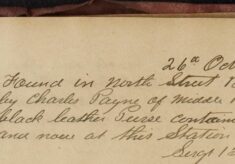 26th Oct
Found in North Street
by Charles Payne of Middle
black leather Purse contain
and now at this Station
Sergt